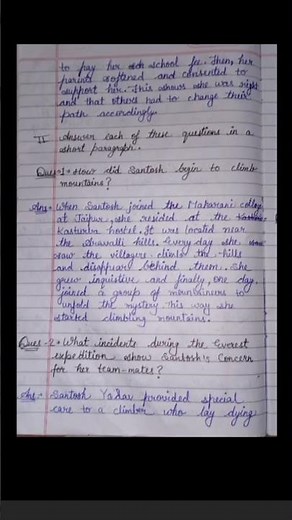 to pay her school fee. Then, her
parents softened and consented to
support her. This shows she was right
and that others had to change their
path accordingly.
II Answer each of these questions in a
short paragraph.
Ques-1- How did Santosh begin to climb
mountains?
Ans- When Santosh joined the Maharani college
at Jaipur, she resided at the
Kasturba hostel. It was located near
the Aravalli hills. Every day she
saw the villagers climb the hills
and disappear behind them. She
grew inquistive and finally, one day,
joined a group of mountaineers to
unfold the mystery. This way she
started climbing mountains.
Ques-2- What incidents during the Everest
expedition show Santosh's Concern
for her team-mates?
Ans- Santosh Yadav provided special
care to a climber who lay dying